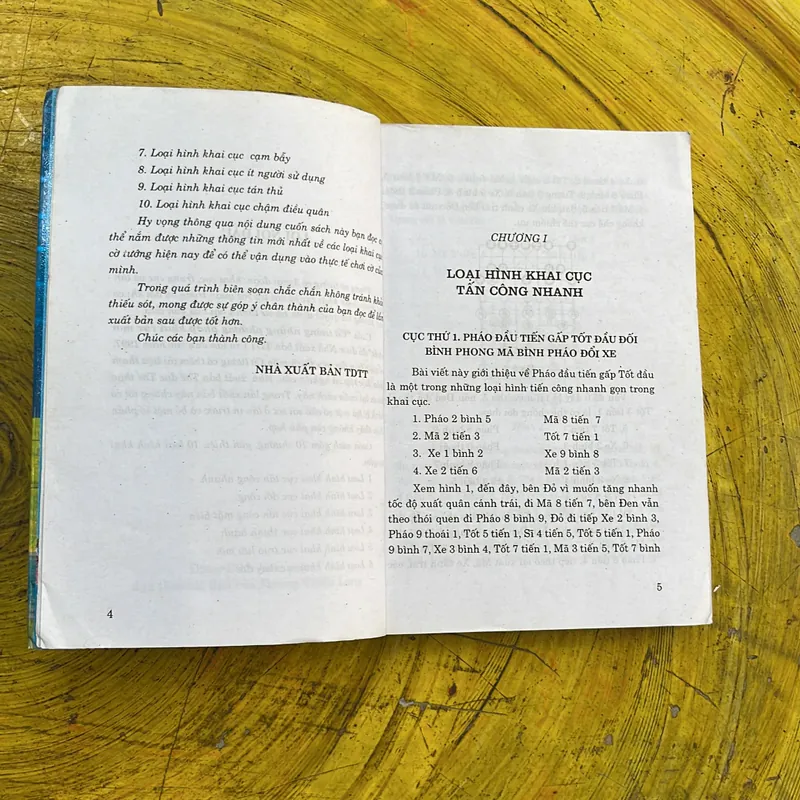 7. Loại hình khai cục cạm bẫy
8. Loại hình khai cục ít người sử dụng
9. Loại hình khai cục tán thủ
10. Loại hình khai cục chậm điều quân
Hy vọng thông qua nội dung cuốn sách này bạn đọc
thể nắm được những thông tin mới nhất về các loại khai
cờ tướng hiện nay để có thể vận dụng vào thực tế chơi cờ của
mình.
Trong quá trình biên soạn chắc chắn không tránh khỏi
thiếu sót, mong được sự góp ý chân thành của bạn đọc để lần
xuất bản sau được tốt hơn.
Chúc các bạn thành công.
NHÀ XUẤT BẢN TDTT
4
CHƯƠNG I
LOẠI HÌNH KHAI CỤC
TẤN CÔNG NHANH
CỤC THỨ 1. PHÁO ĐẦU TIẾN GẤP TỐT ĐẦU ĐỐI
BÌNH PHONG MÃ BÌNH PHÁO ĐỔI XE
Bài viết này giới thiệu về Pháo đầu tiến gấp Tốt đầu
là một trong những loại hình tiến công nhanh gọn trong
khai cục.
1. Pháo 2 bình 5 Mã 8 tiến 7
2. Mã 2 tiến 3 Tốt 7 tiến 1
3. Xe 1 bình 2 Xe 9 bình 8
4. Xe 2 tiến 6 Mã 2 tiến 3
Xem hình 1, đến đây, bên Đỏ vì muốn tăng nhanh
tốc độ xuất quân cánh trái, đi Mã 8 tiến 7, bên Đen vẫn
theo thói quen đi Pháo 8 bình 9, Đỏ đi tiếp Xe 2 bình 3,
Pháo 9 thoái 1, Tốt 5 tiến 1, Sĩ 4 tiến 5, Tốt 5 tiến 1, Pháo
9 bình 7, Xe 3 bình 4, Tốt 7 tiến 1, Mã 3 tiến 5, Tốt 7 bình
5